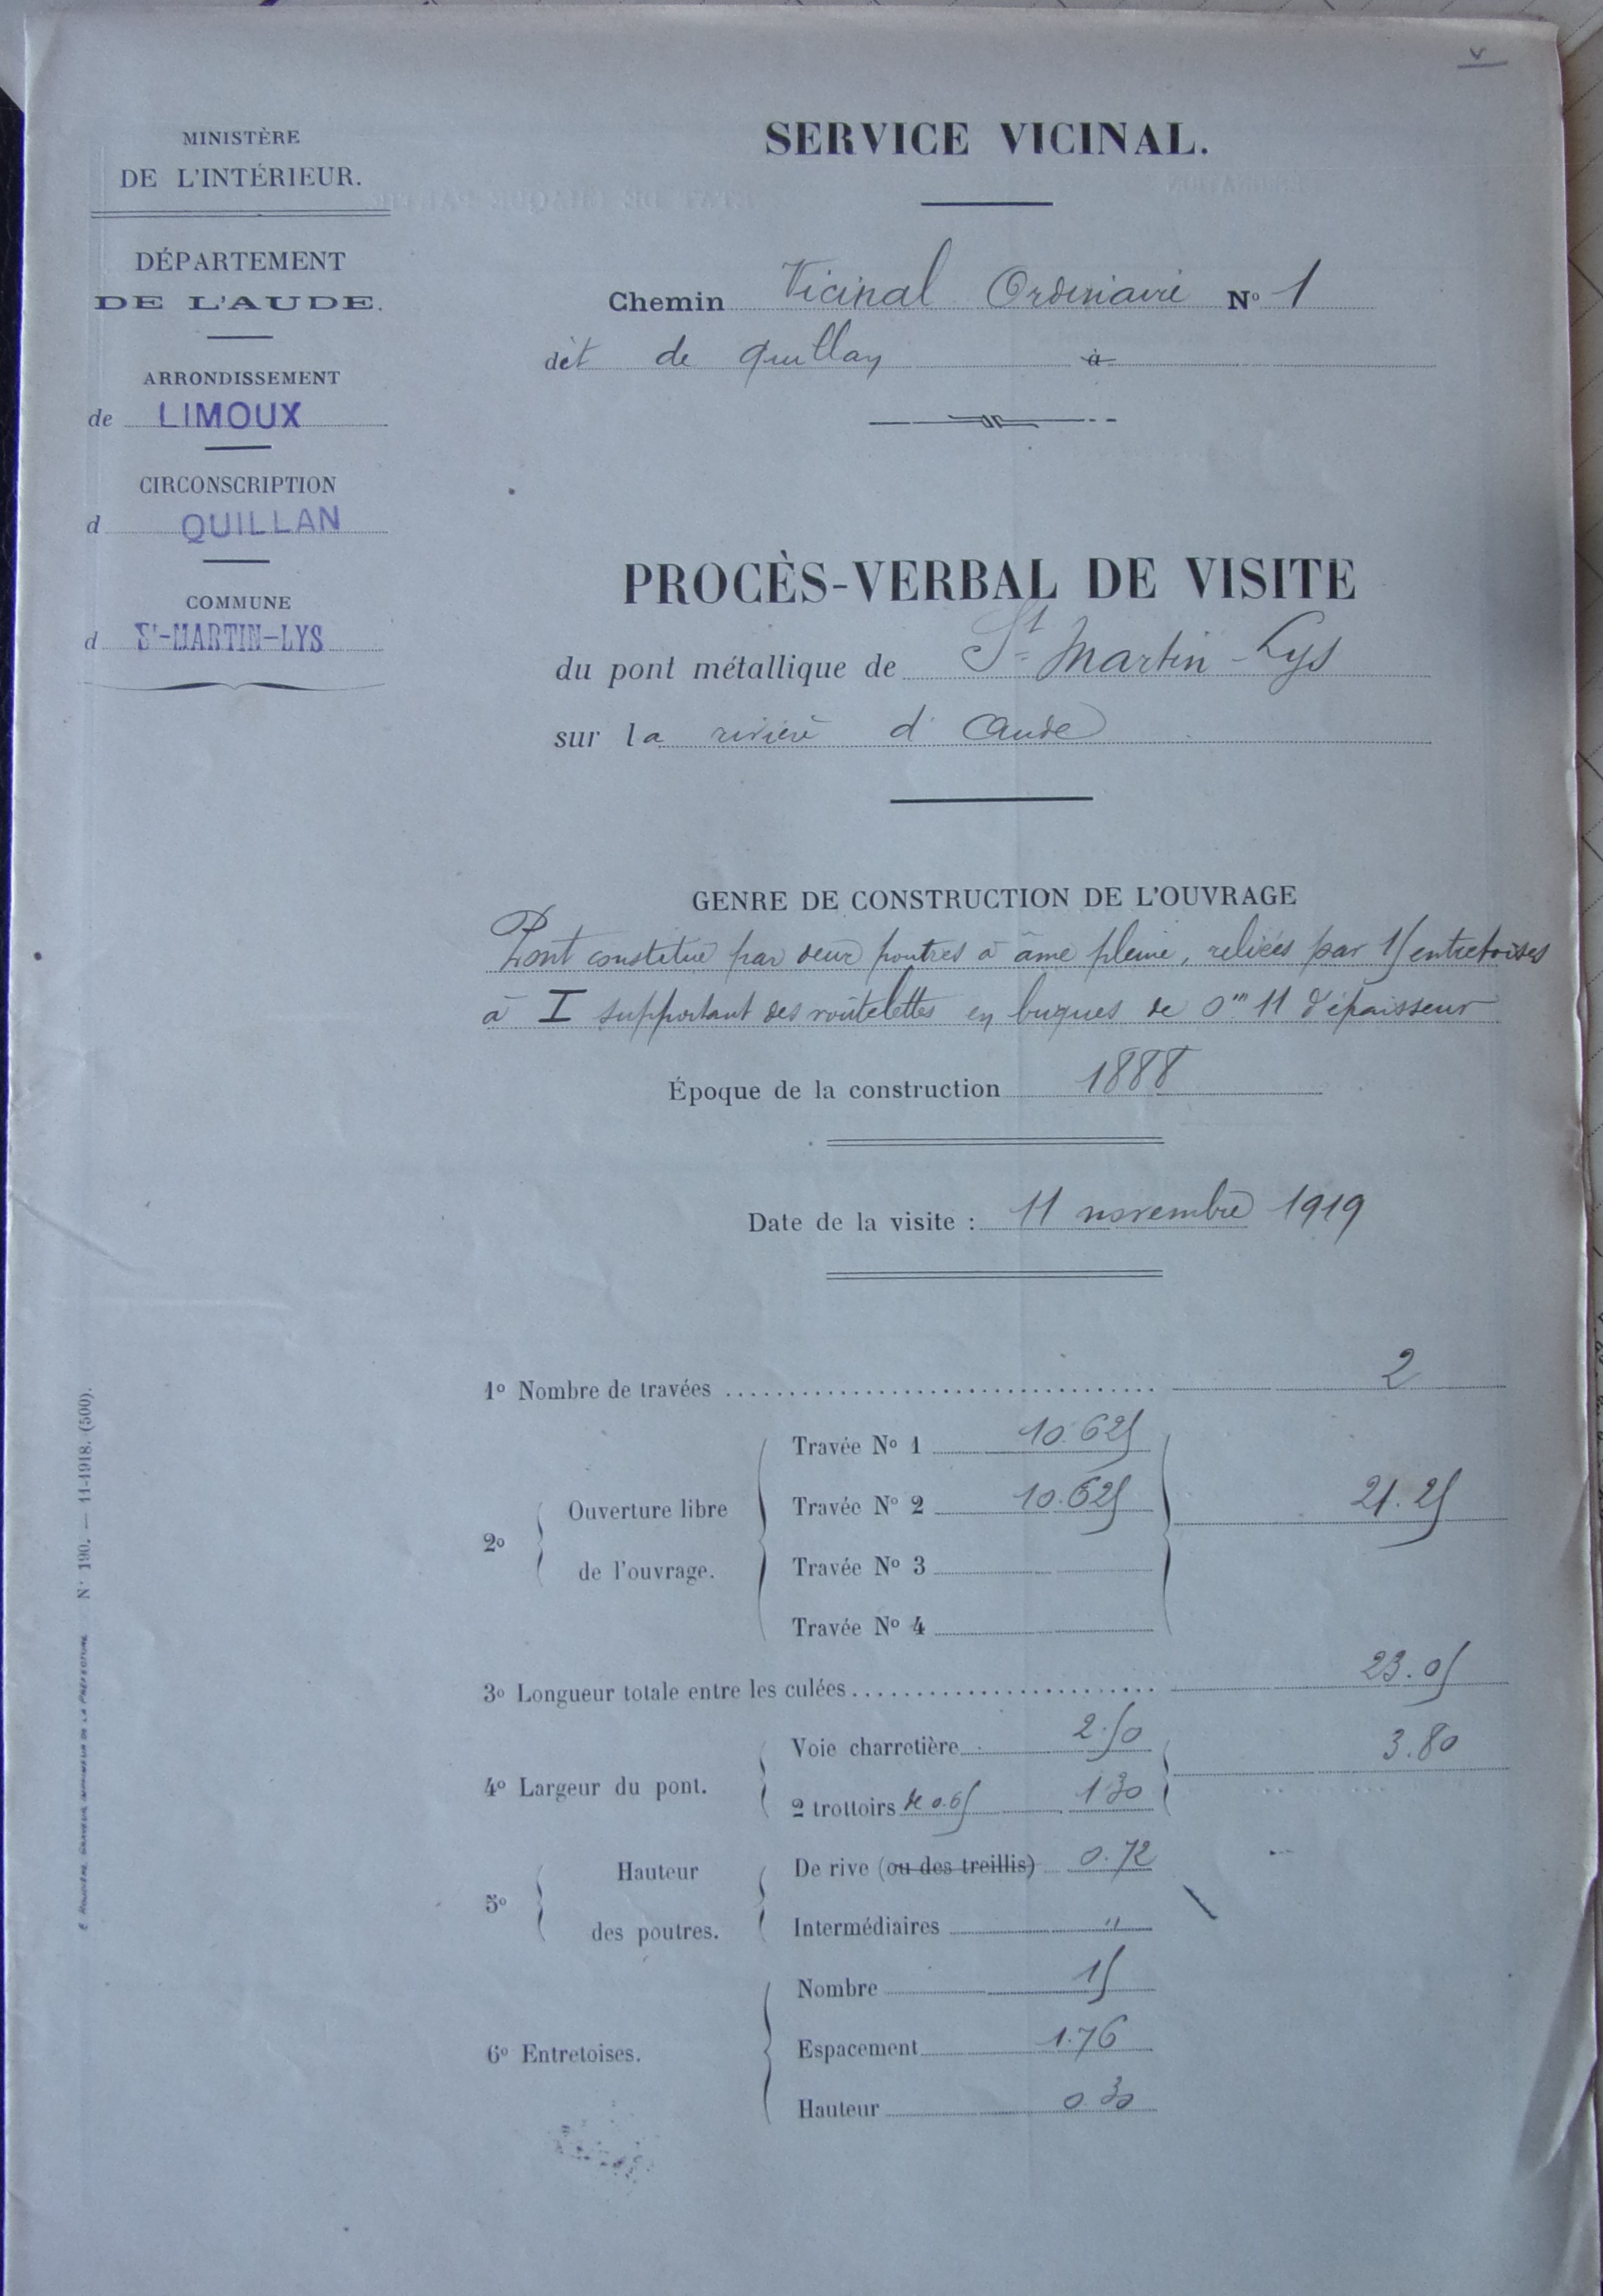 MINISTÈRE
DE L'INTÉRIEUR.
DÉPARTEMENT
DE L'AUDE.
ARRONDISSEMENT
de LIMOUX
CIRCONSCRIPTION
d QUILLAN
COMMUNE
d St-MARTIN-LYS
SERVICE VICINAL.
Chemin Vicinal Ordinaire No 1
dit de Quillan à
PROCÈS-VERBAL DE VISITE
du pont métallique de St Martin-Lys
sur la rivière d'Aude
GENRE DE CONSTRUCTION DE L'OUVRAGE
Pont constitué par deux poutres à âme pleine, reliées par 15 entretoises
à I supportant des voûtelettes en briques de 0m11 d'épaisseur
Époque de la construction 1888
Date de la visite : 11 novembre 1919
1o Nombre de travées 2
2o Ouverture libre de l'ouvrage.
Travée No 1 10.625
Travée No 2 10.625
21.25
Travée No 3
Travée No 4
3o Longueur totale entre les culées 23.05
4o Largeur du pont.
Voie charretière 2.50
3.80
2 trottoirs de 0.65 1.30
5o Hauteur des poutres.
De rive (ou des treillis) 0.72
Intermédiaires "
6o Entretoises.
Nombre 15
Espacement 1.76
Hauteur 0.30
No 190. — 11-1918. (500).